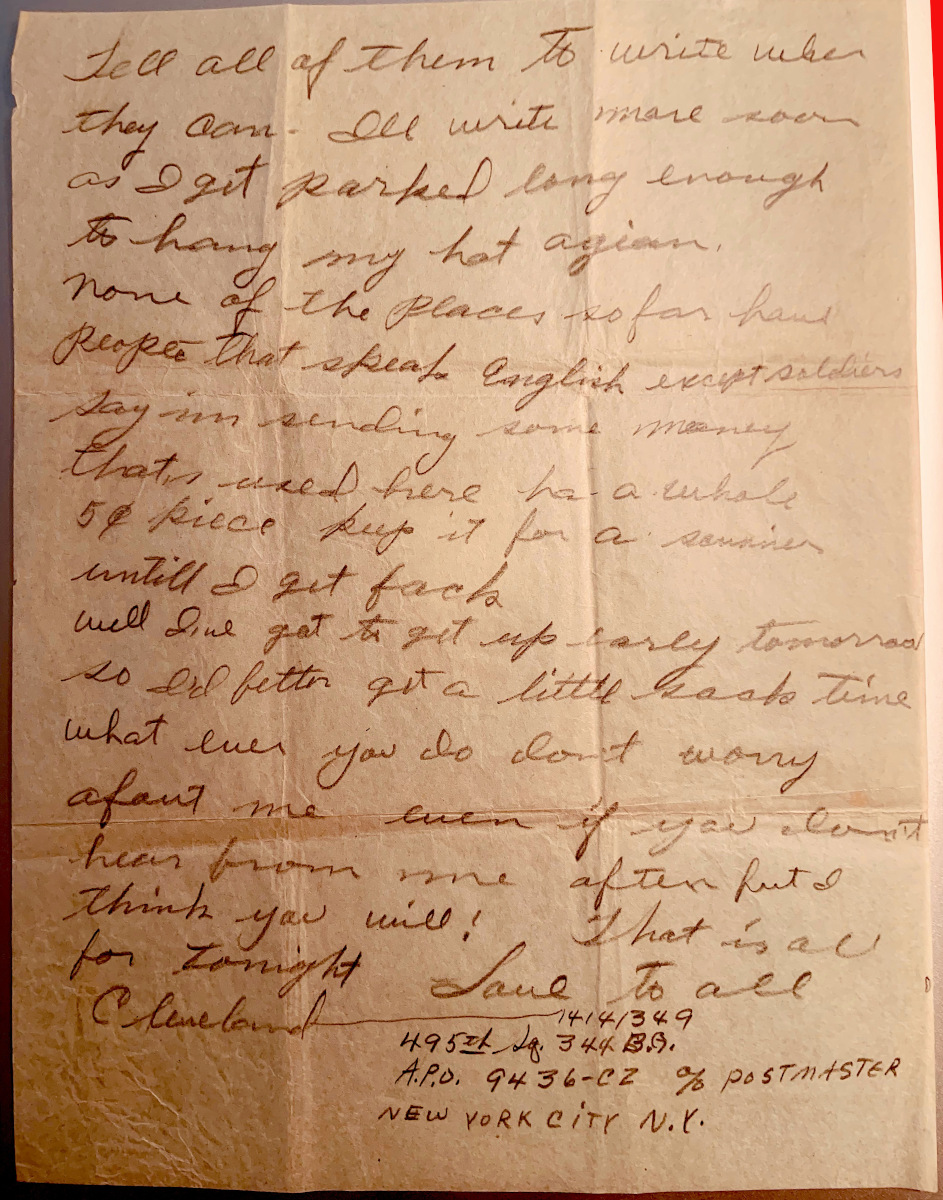 Tell all of them to write when
they can. Ill write more soon
as I get parked long enough
to hang my hat agian.
none of the places so far have
people that speak English except soldiers
Say im sending some money
thats used here its a whole
5¢ piece keep it for a souviner
untill I get back
well I've got to get up early tomorrow
so I'd better get a little sack time
what ever you do don't worry
about me even if you don't
hear from me often but I
think you will! That is all
for tonight Love to all
Cleveland 14141349
495th Sq. 344 B.G.
A.P.O. 9436-CZ % POSTMASTER
NEW YORK CITY N.Y.